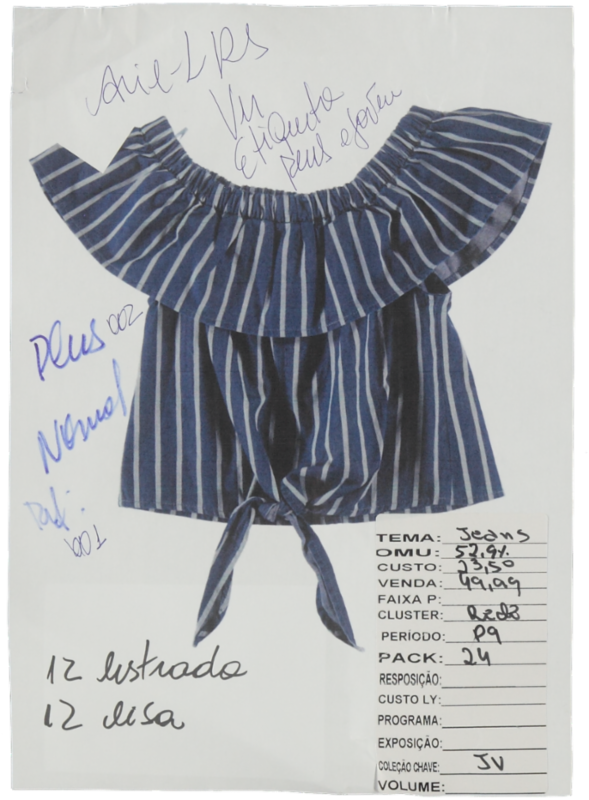 Ver
etiqueta
plus e jovem
Plus 002
Normal
001
TEMA: Jeans
OMU: 52,9%
CUSTO: 23,50
VENDA: 49,99
FAIXA P:
CLUSTER: Rede
PERÍODO: P9
PACK: 24
RESPOSIÇÃO:
CUSTO LY:
PROGRAMA:
EXPOSIÇÃO:
COLEÇÃO CHAVE: JV
VOLUME:
12 listrada
12 lisa